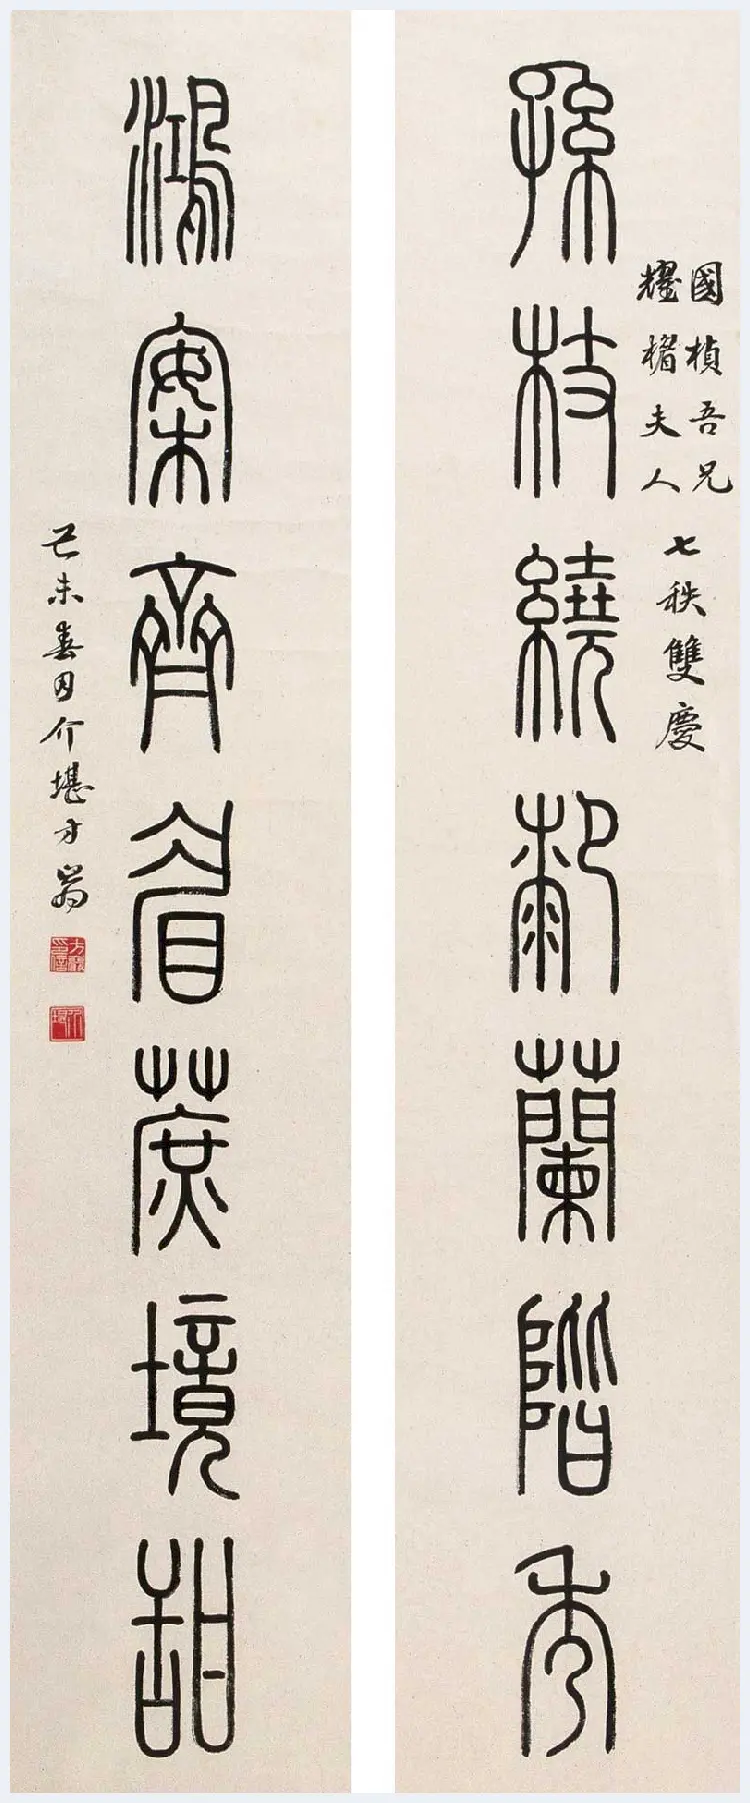 孫枝繞郄蘭階秀
國楨吾兄
耀楣夫人
七秩雙慶
鴻案齊眉蔗境甜
己未春日介堪方巖